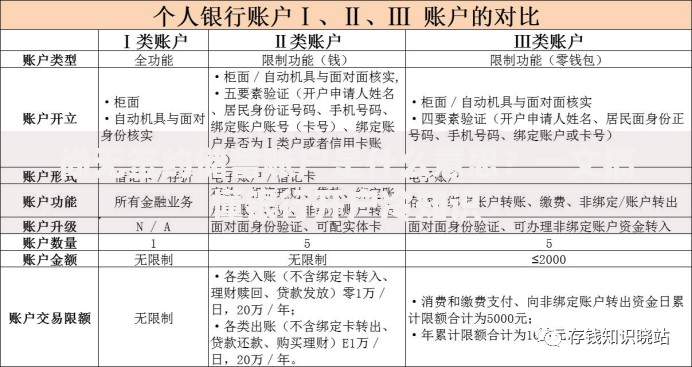 个人银行账户Ⅰ、Ⅱ、Ⅲ 账户的对比
Ⅰ类账户
Ⅱ类账户
Ⅲ类账户
账户类型
全功能
限制功能（钱）
限制功能（零钱包）
账户开立
·柜面
·自动机具与面对
身份核实
·柜面／自动机具与面对面核实,
·五要素验证（开户申请人姓名
、居民身份证号码、手机号码、
绑定账户账号（卡号）、绑定账
户是否为Ⅰ类户或者信用卡账
）
·柜面／自动机具与面对面核实
·四要素验证（开户申请人姓名、居民面身份正
号码、手机号码、绑定账户或卡号）
账户形式
账户功能
所有金融业务
账户转账、缴费、非绑定/账户转出
账户升级
N / A
面对面身份验证、可配实体卡
面对面身份验证、可办理非绑定账户资金转入
账户数量
1
5
5
账户金额
无限制
无限制
≤2000
账户交易限额
无限制
·各类入账（不含绑定卡转入、
理财赎回、贷款发放）零1万/
日，20万/年;
·各类出账（不含绑定卡转出、
贷款还款、购买理财）E1万/
日，20万/年。
·消费和缴费支付、向非绑定账户转出资金日累
计限额合计为5000元;
·年累计限额合计为10
元
存钱知识晓站